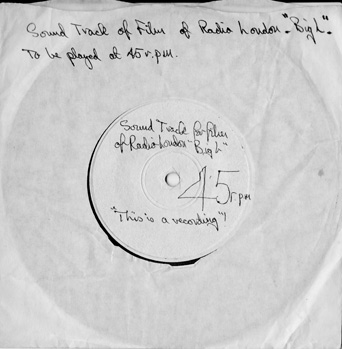 Sound Track of Film of Radio London - "Big L".
To be played at 45 r.p.m.
Sound Track for Film
of Radio London "Big L"
45 r.p.m
"This is a recording"!